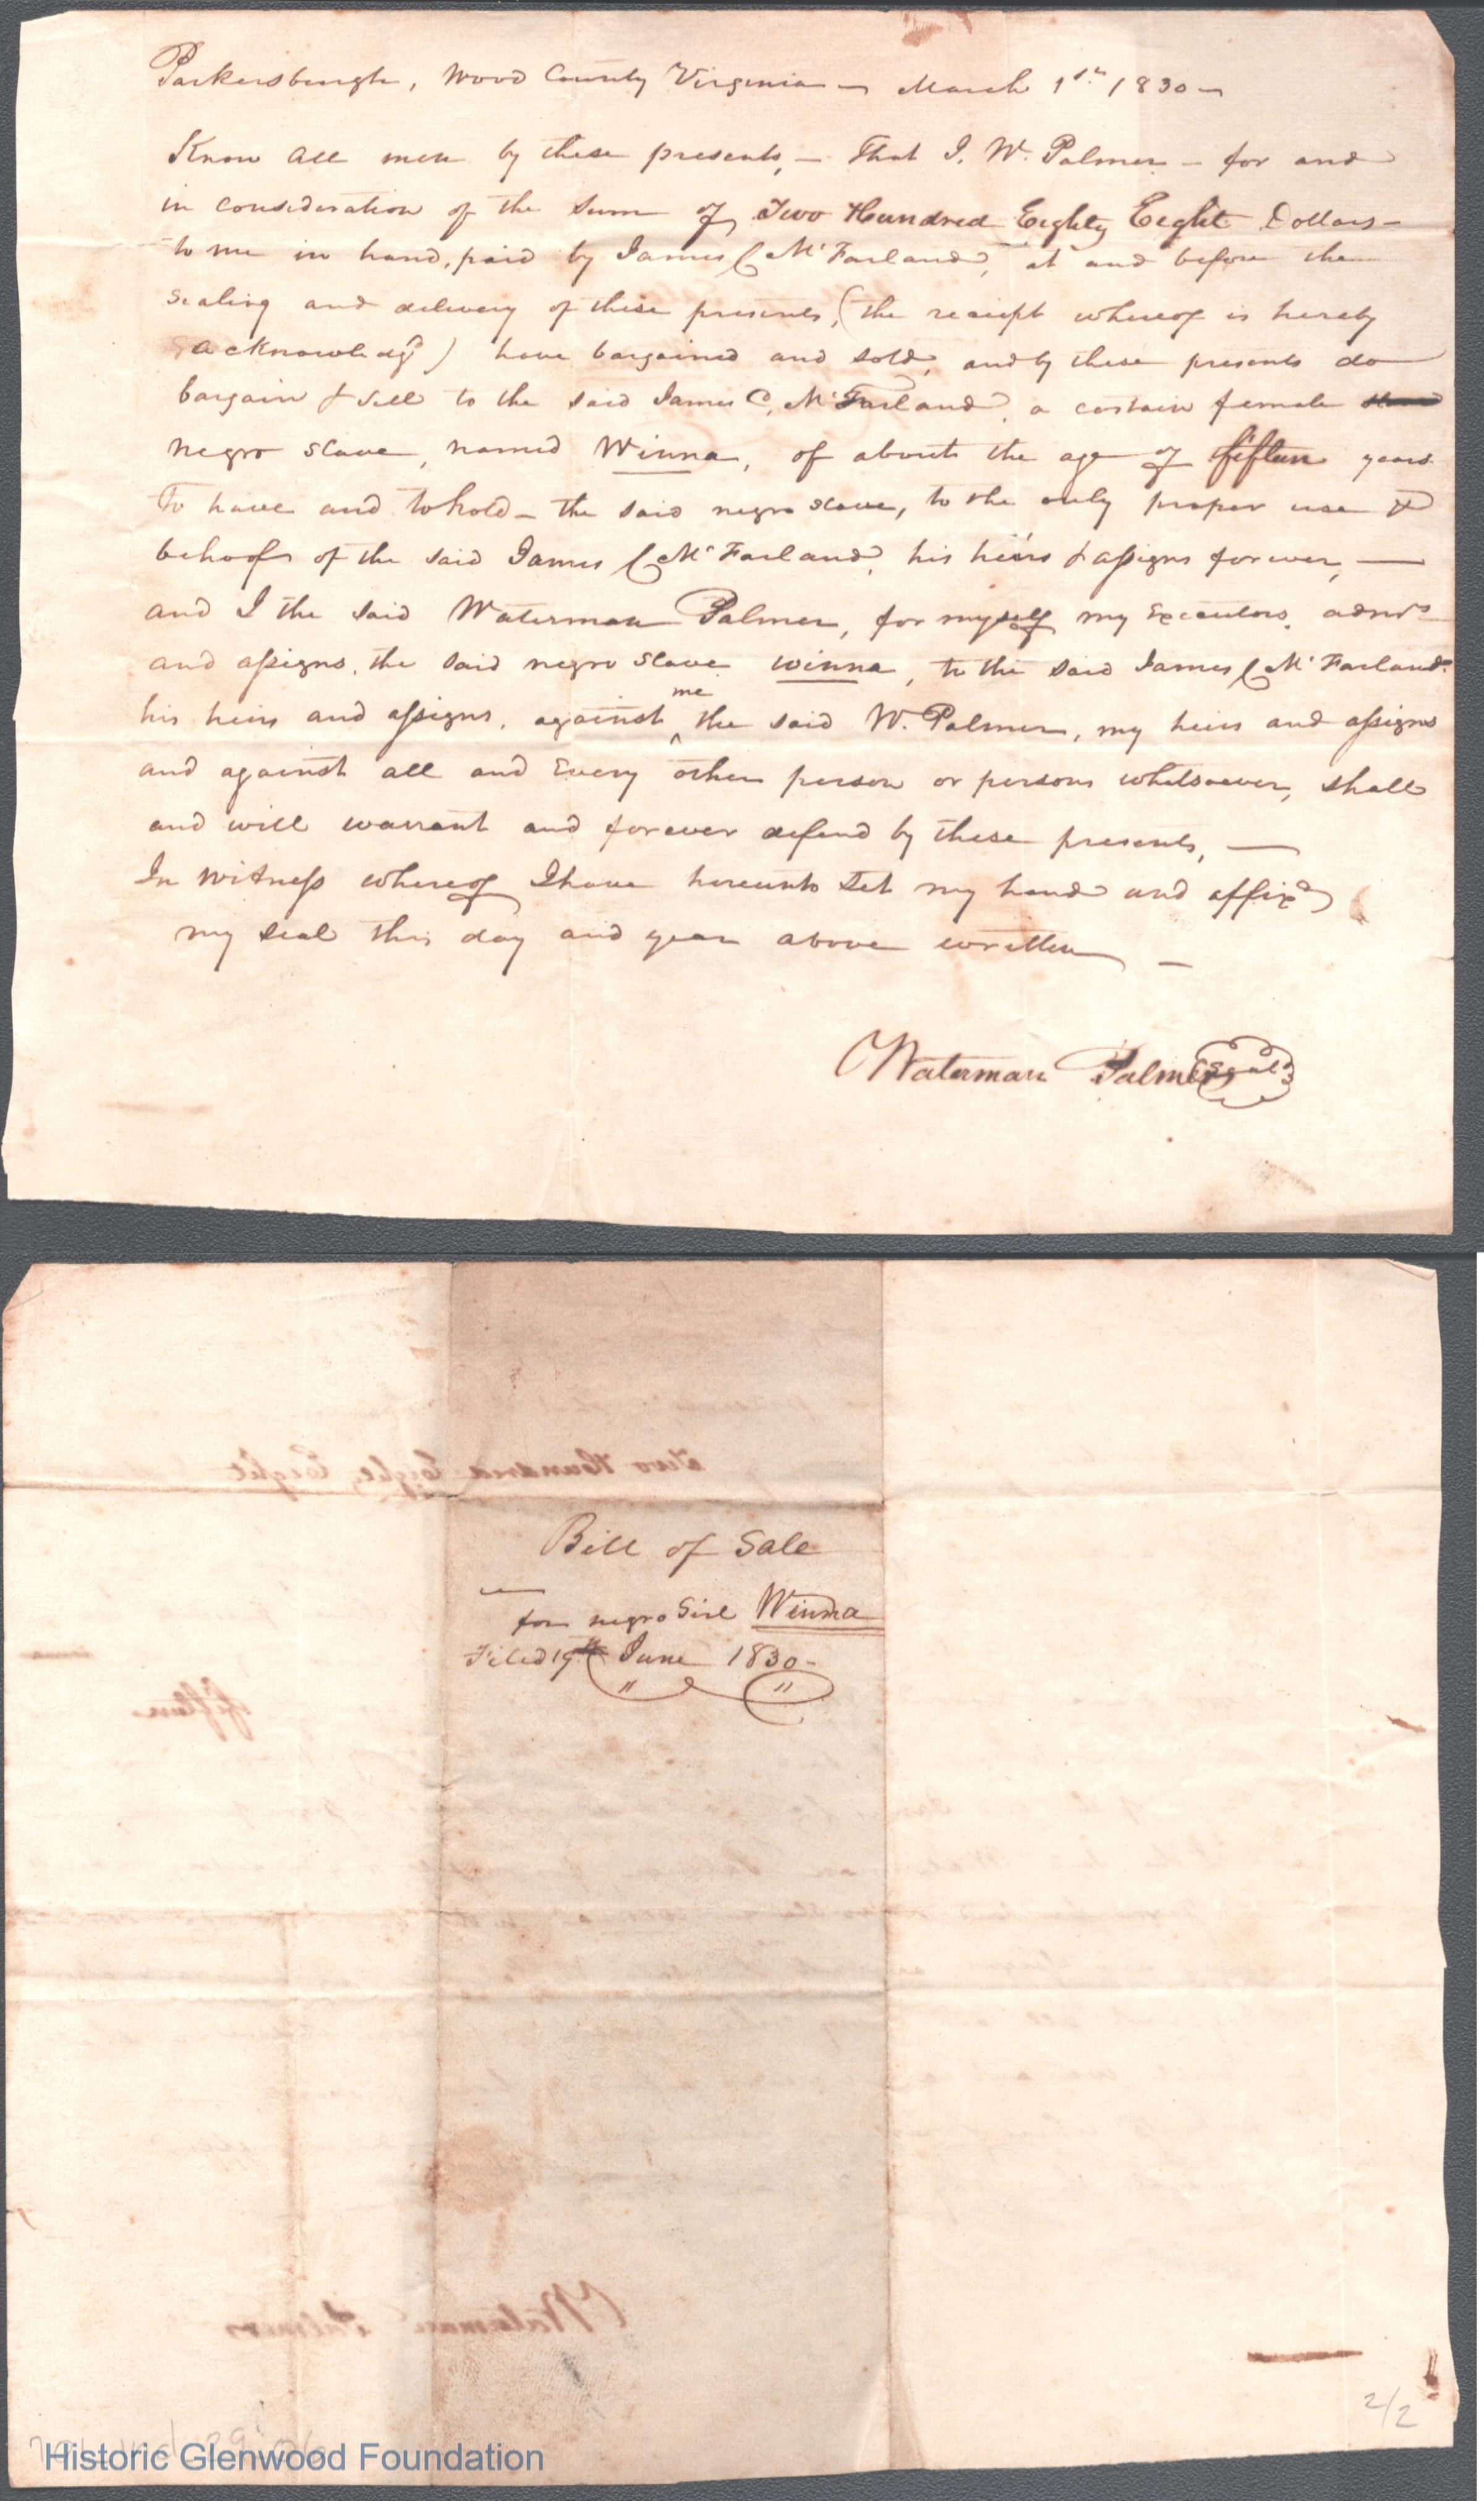 Parkersburgh, Wood County Virginia – March 1st 1830 –
Know all men by these presents, – That I. W. Palmer – for and
in consideration of the sum of Two Hundred Eighty Eight Dollars –
to me in hand, paid by James C McFarland, at and before the
sealing and delivery of these presents, (the receipt whereof is hereby
acknowledgd) have bargained and sold, and by these presents do
bargain & sell to the said James C. McFarland, a certain female
negro slave, named Winna, of about the age of fifteen years
To have and to hold – the said negro slave, to the only proper use &
behoof of the said James C McFarland, his heirs & assigns forever, —
and I the said Waterman Palmer, for myself my Executors, admrs
and assigns, the said negro slave winna, to the said James C McFarland
his heirs and assigns, against me the said W. Palmer, my heirs and assigns
and against all and Every other person or persons whatsoever, shall
and will warrant and forever defend by these presents, —
In witness whereof I have hereunto set my hand and affixd
my seal this day and year above written —
Waterman Palmer Seal
Two Hundred Eighty Eight
Bill of Sale
for negro Girl Winna
Filed 19th June 1830 –
fifteen
Waterman Palmer
2/2
Historic Glenwood Foundation